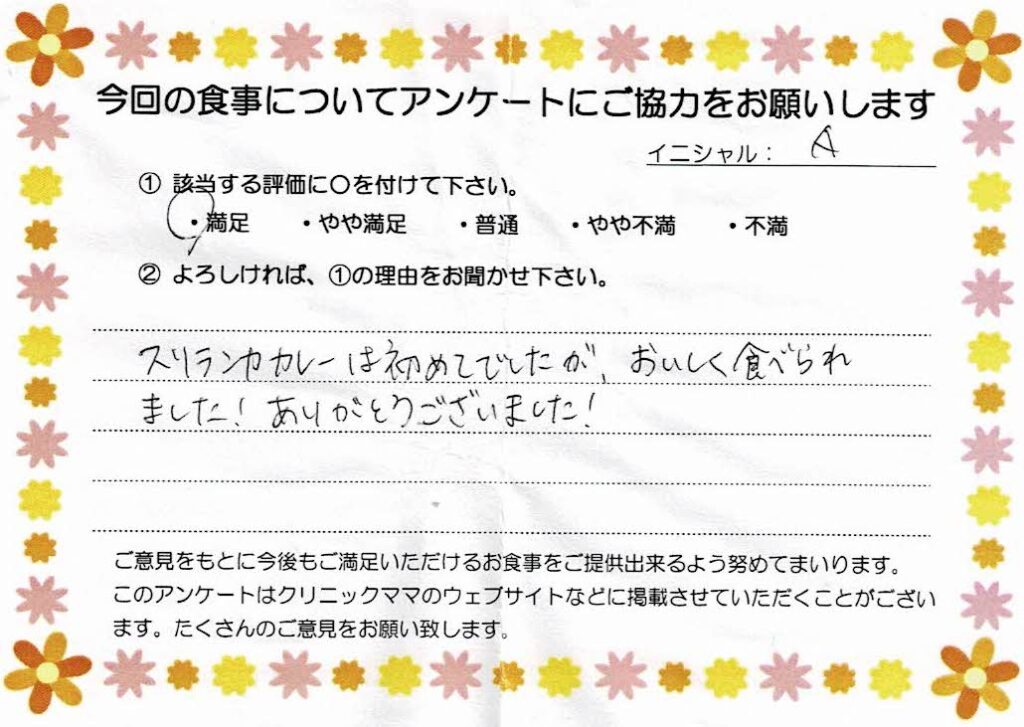 今回の食事についてアンケートにご協力をお願いします
イニシャル： A
① 該当する評価に〇を付けて下さい。
・満足 ・やや満足 ・普通 ・やや不満 ・不満
② よろしければ、①の理由をお聞かせ下さい。
スリランカカレーは初めてでしたが、おいしく食べられ
ました！ありがとうございました！
ご意見をもとに今後もご満足いただけるお食事をご提供出来るよう努めてまいります。
このアンケートはクリニックママのウェブサイトなどに掲載させていただくことがござい
ます。たくさんのご意見をお願い致します。